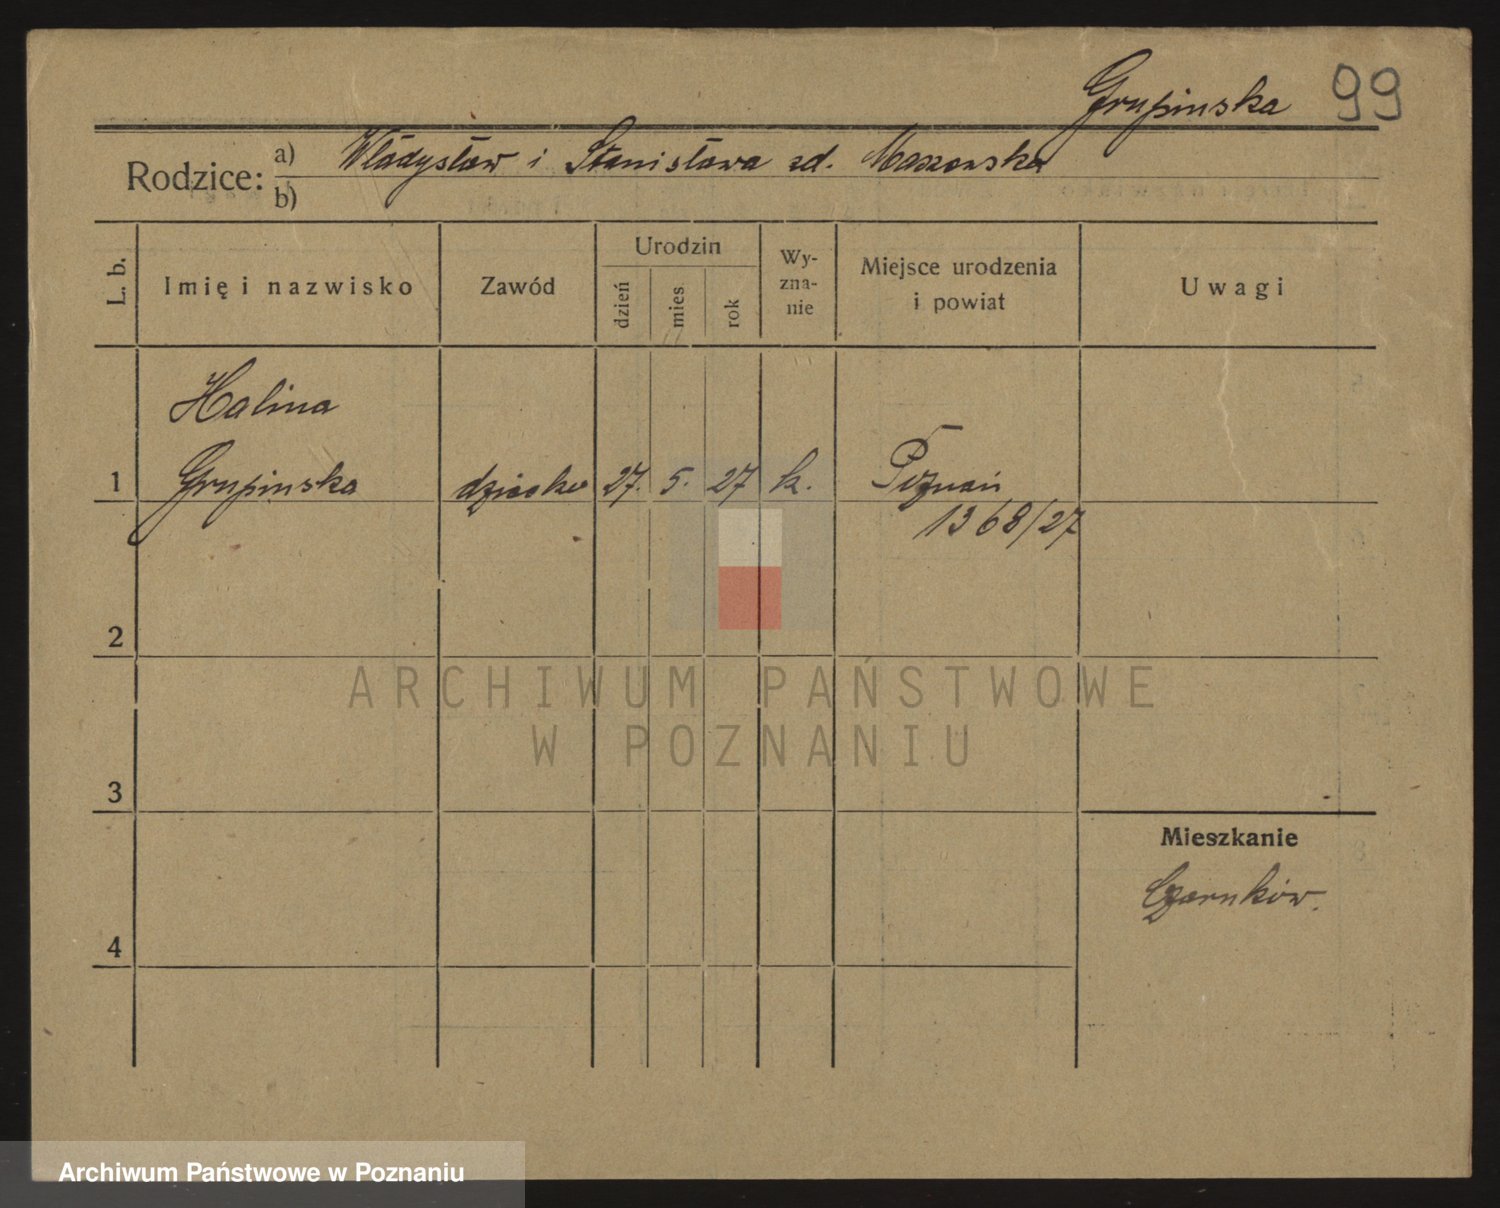 Grupinska 99
Rodzice: a) Władysław i Stanisława zd.
b)
L. b.
Imię i nazwisko
Zawód
Urodzin
dzień
mies
rok
Wy-
zna-
nie
Miejsce urodzenia
i powiat
Uwagi
Halina
1 Grupinska dziecko 27. 5. 27 k. Poznań
1368/27
2
ARCHIWUM PAŃSTWOWE
W POZNANIU
3
Mieszkanie
Czarnków.
4
Archiwum Państwowe w Poznaniu